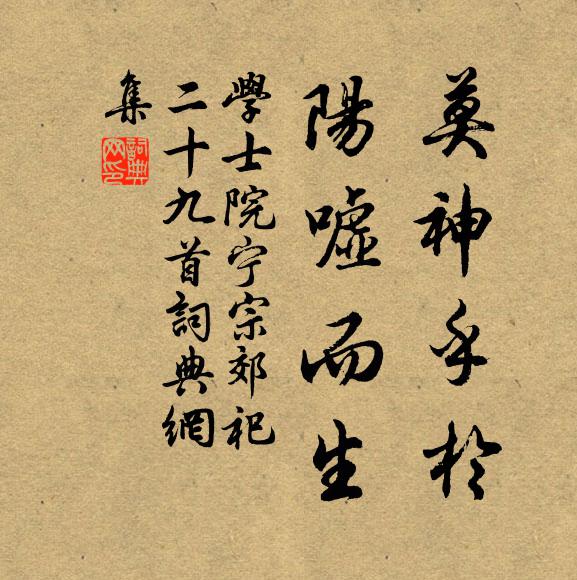 莫神乎於
陽噓而生
學士院宁宗郊祀
二十九首詞典網
集
詞典
网印